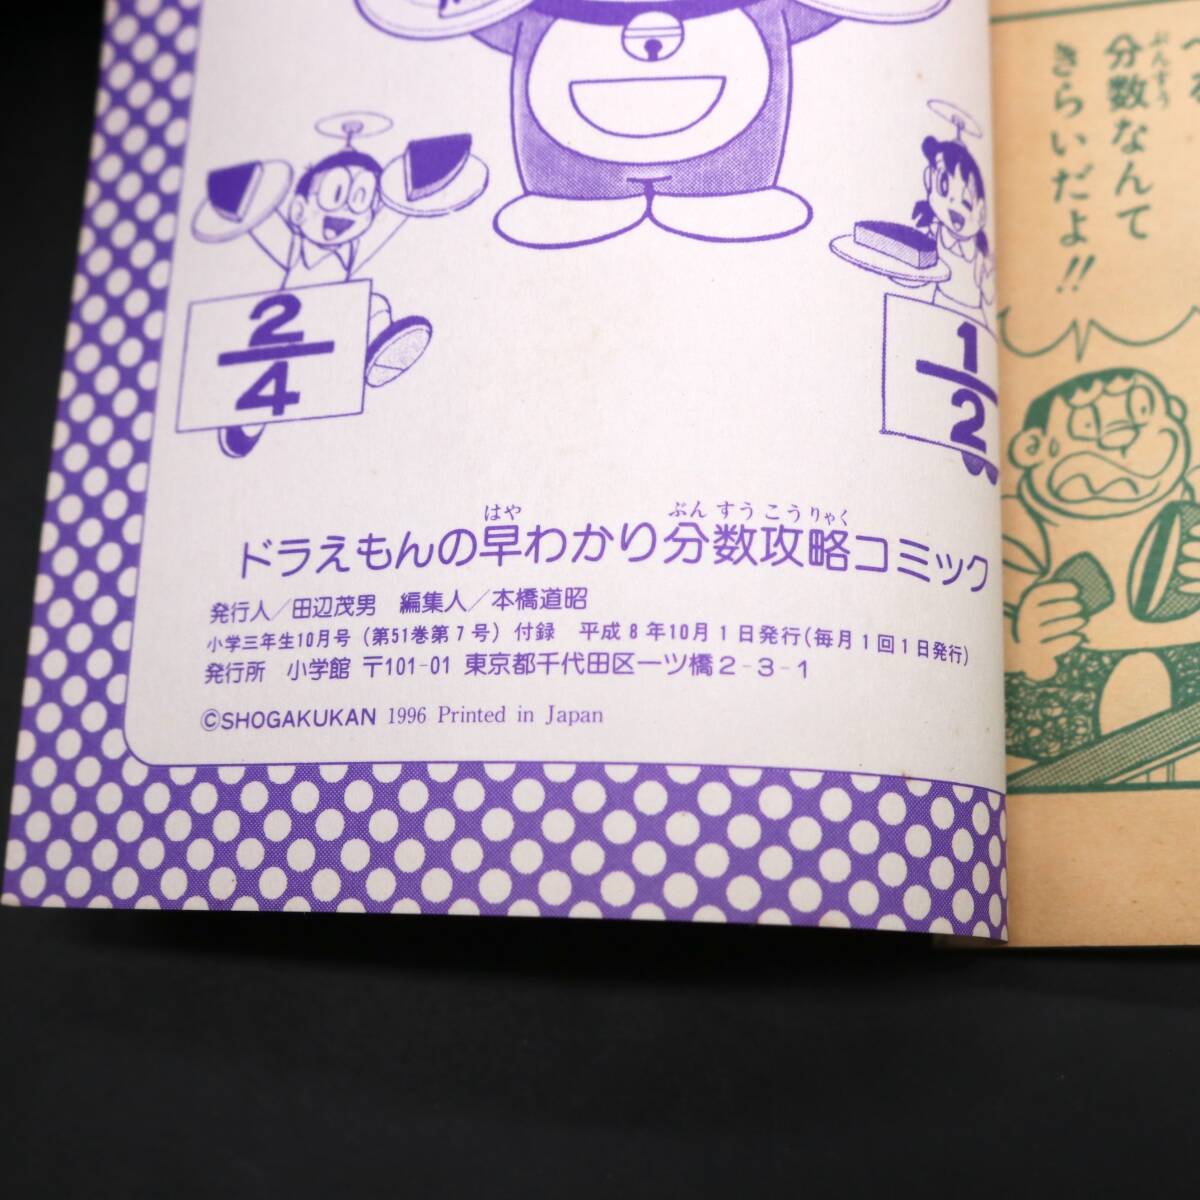 2
4
1
2
はや ぶんすうこうりゃく
ドラえもんの早わかり分数攻略コミック
発行人/田辺茂男 編集人/本橋道昭
小学三年生10月号(第51巻第7号)付録 平成8年10月1日発行(毎月1回1日発行)
発行所 小学館 〒101-01 東京都千代田区一ツ橋2-3-1
©SHOGAKUKAN 1996 Printed in Japan
ぶんすう
分数なんて
きらいだよ!!